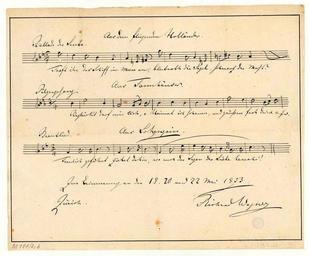 Aus dem fliegenden Holländer.
Ballade der Senta.
Traft ihr das Schiff im Meere an, blutroth die Segel, schwarz der Mast?
Aus Tannhäuser.
Beglückt darf nun dich, o Heimat ich schauen, und grüßen froh deine
Aus Lohengrin.
Brautlied.
Treulich geführt ziehet dahin, wo euch der Segen der Liebe bewahr!
Zur Erinnerung an den 18. 20 und 22 Mai 1853
Zürich.
Richard Wagner